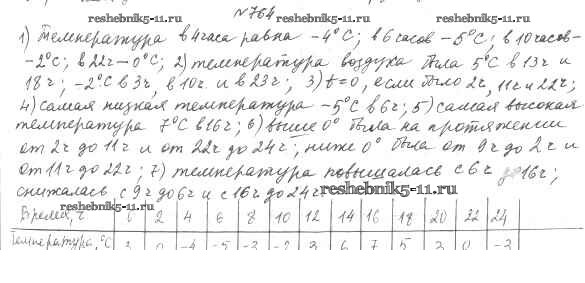 reshebnik5-11.ru
№764
1) Температура в 4 часа равна -4°C; в 6 часов -5°C; в 10 часов-
-2°C; в 22ч-0°C; 2) температура воздуха была 5°C в 13ч и
18ч; -2°C в 3ч, в 10ч. и в 23ч; 3) t=0, если было 2ч, 11ч и 22ч;
4) самая низкая температура -5°C в 6ч; 5) самая высокая
температура 7°C в 16ч; 6) выше 0° была на протяжении
от 2ч до 11ч и от 22ч до 24ч, ниже 0° была от 9ч до 2ч и
от 11ч до 22ч; 7) температура повышалась с 6ч до 16ч;
снижалась с 9ч до 6ч и с 16ч до 24ч.
reshebnik5-11.ru
reshebnik5-11.ru
Время, ч 2 4 6 8 10 12 14 16 18 20 22 24
Температура, °C 0 -4 -5 -2 3 6 7 5 2 0